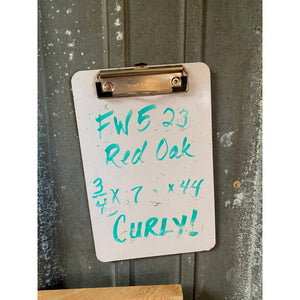 FW523
Red Oak
3/4 x 7 x 44
CURLY!